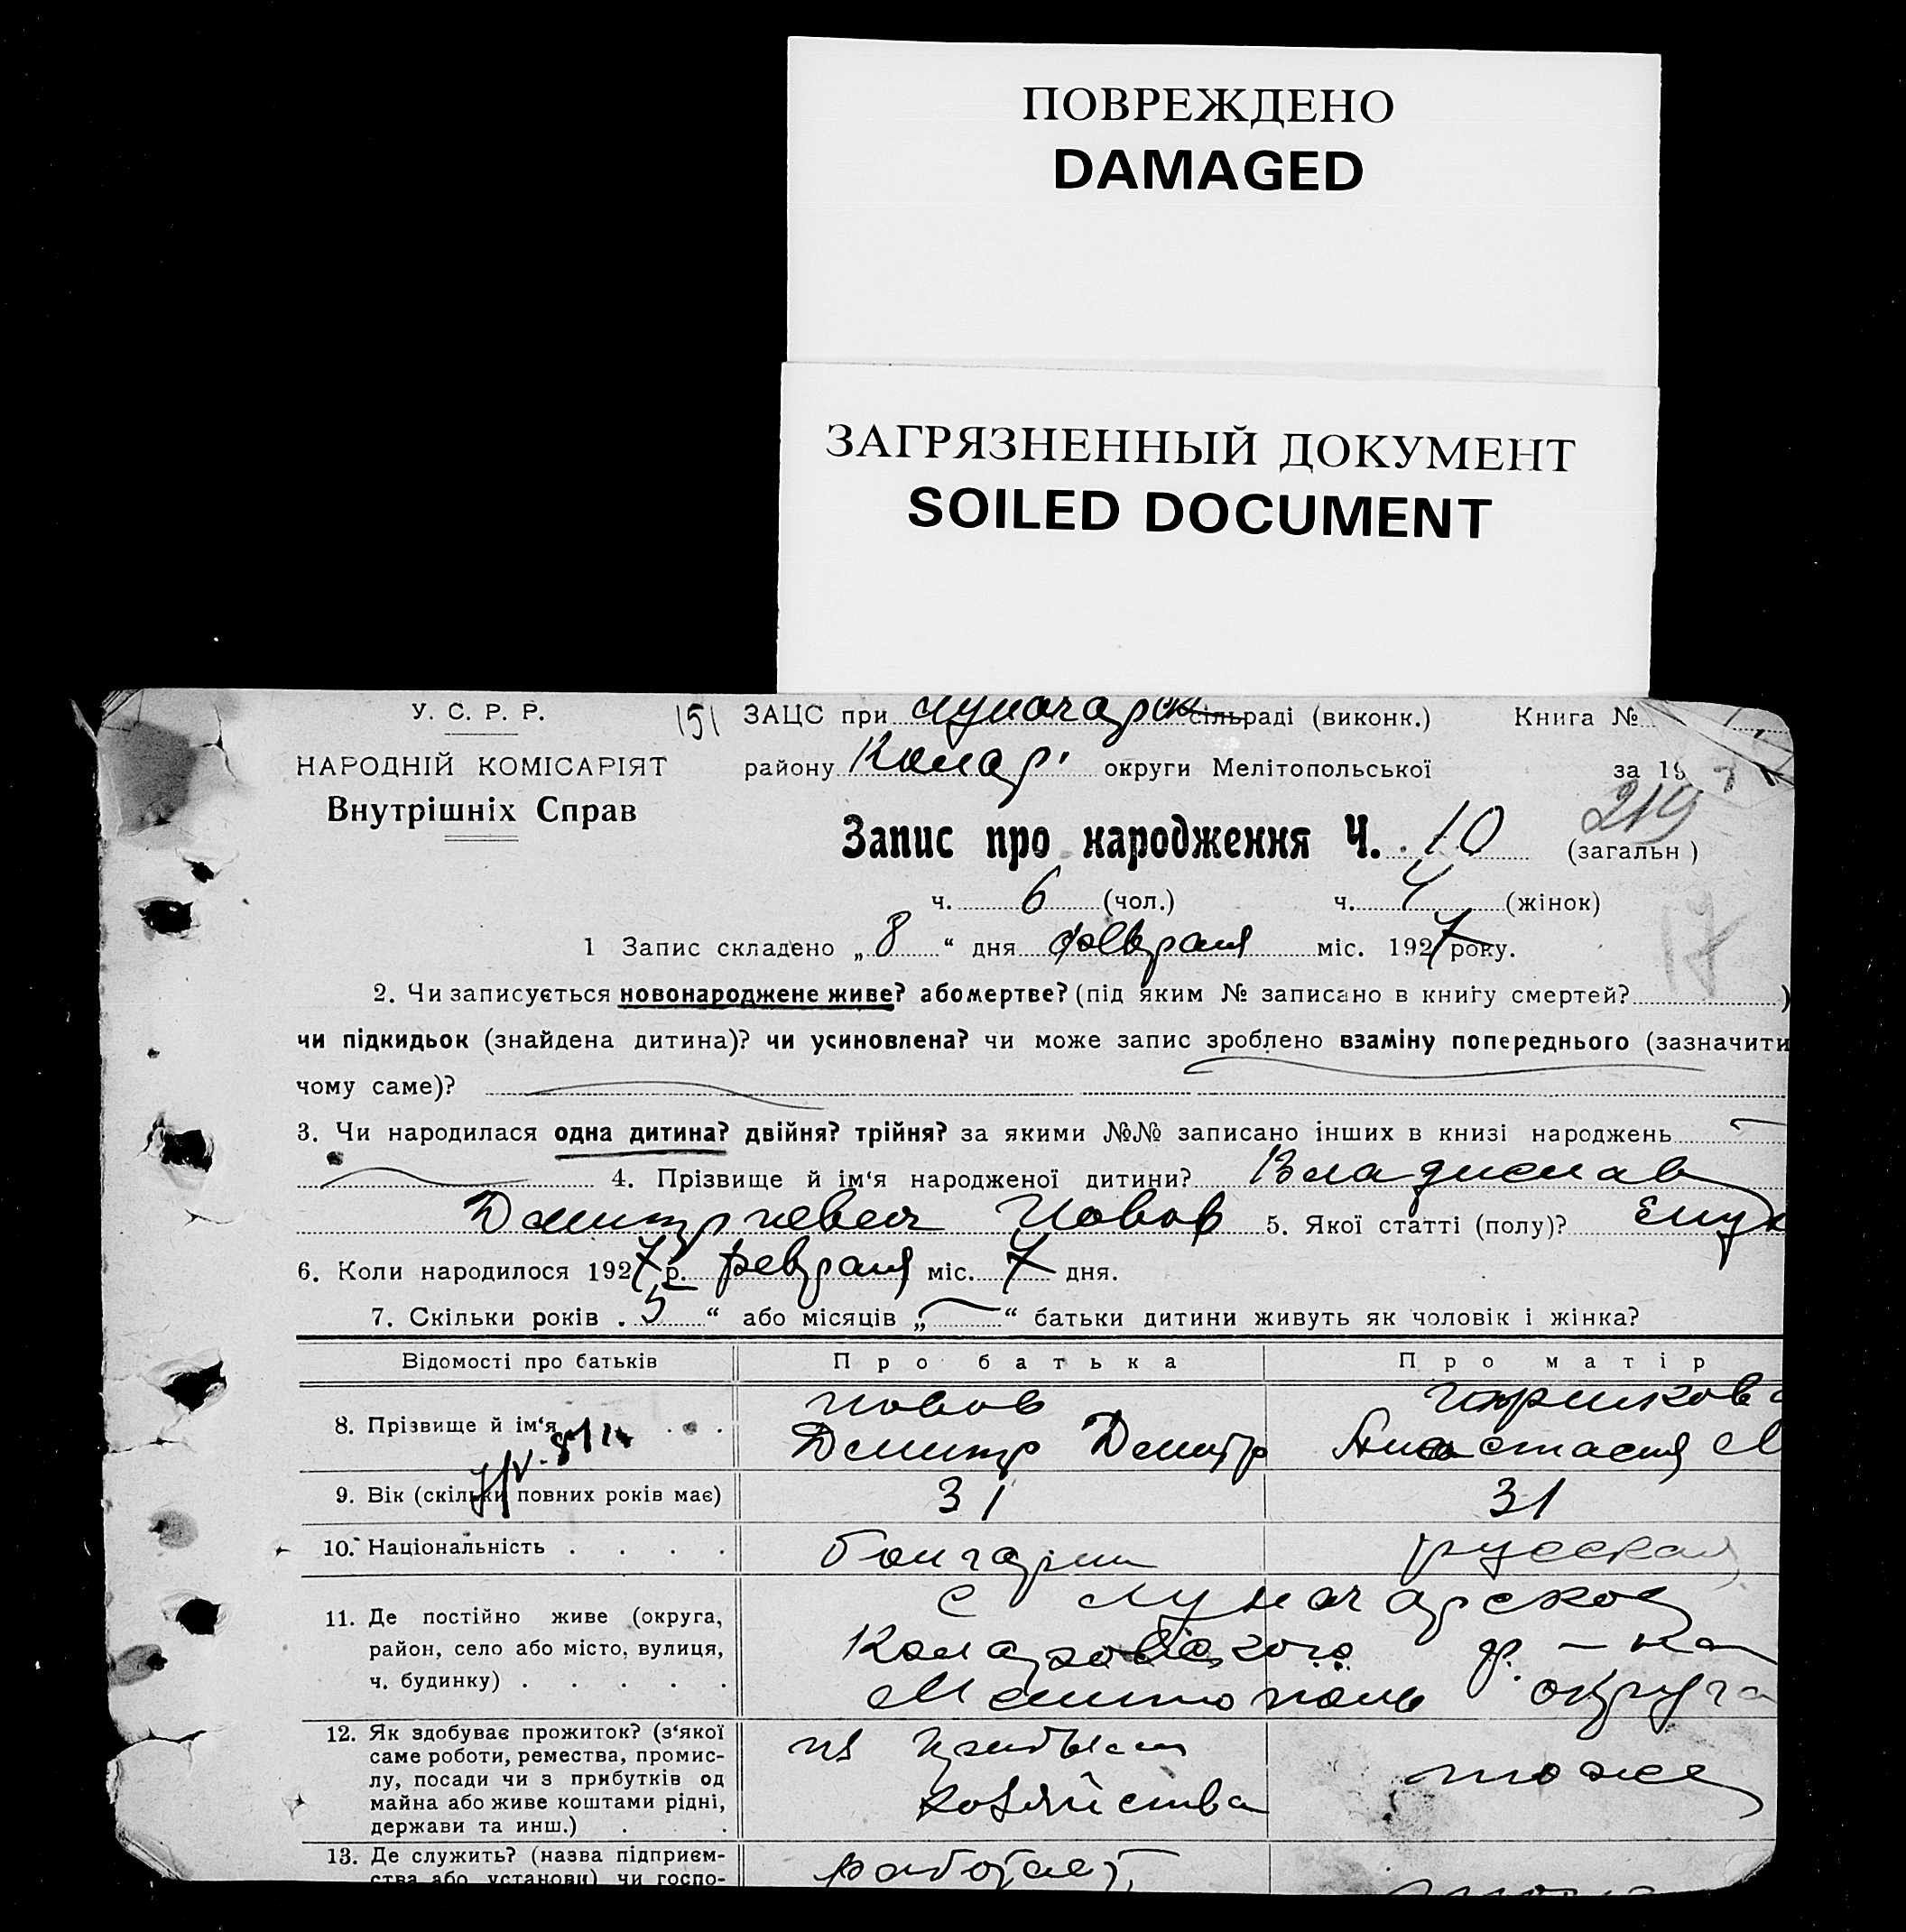 ПОВРЕЖДЕНО
DAMAGED
ЗАГРЯЗНЕННЫЙ ДОКУМЕНТ
SOILED DOCUMENT
У. С. Р. Р.
151 ЗАЦС при Луначарск сільраді (виконк.) Книга №
НАРОДНІЙ КОМІСАРІЯТ
району Колар. округи Мелітопольської за 19 7
Внутрішніх Справ
219
Запис про народження Ч. 10 (загальн)
ч. 6 (чол.) ч. 4 (жінок)
17
1 Запис складено „ 8 “ дня февраля міс. 1927 року.
2. Чи записується новонароджене живе? або мертве? (під яким № записано в книгу смертей? )
чи підкидьок (знайдена дитина)? чи усиновлена? чи може запис зроблено взаміну попереднього (зазначити
чому саме)?
3. Чи народилася одна дитина? двійня? трійня? за якими №№ записано інших в книзі народжень
4. Прізвище й ім‘я народженої дитини? Владислав
Дмитриевич 5. Якої статті (полу)?
6. Коли народилося 1927 р. февраля міс. 7 дня.
7. Скільки років . 5 “ або місяців „ “ батьки дитини живуть як чоловік і жінка?
Відомості про батьків Про батька Про матір
8. Прізвище й ім‘я . .
Дмитр Дмитр Анастасия
9. Вік (скільки повних років має) 31 31
10. Національність . . . . болгарин русская
11. Де постійно живе (округа, с Луначарское
район, село або місто, вулиця, Коларовского р-на
ч. будинку) . . . . . Мелитополь округа
12. Як здобуває прожиток? (з‘якої
саме роботи, ремества, промис-
лу, посади чи з прибутків од
майна або живе коштами рідні,
держави та инш.) . .
хозяйства тоже
13. Де служить? (назва підприєм-
ства або установи) чи госпо-
работает